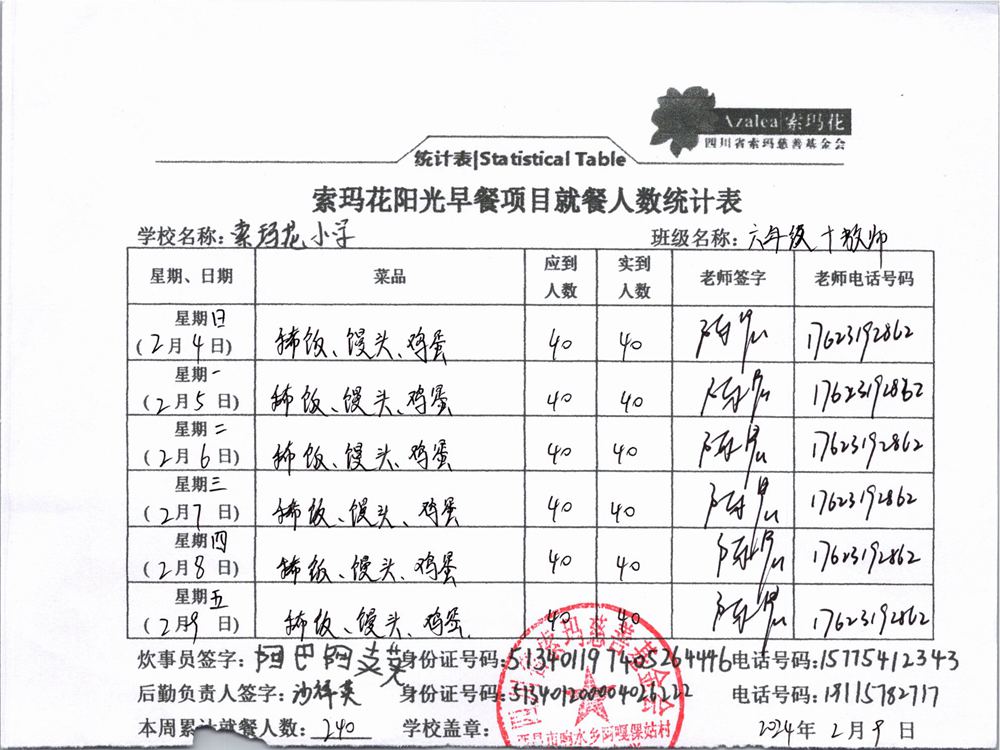 Azalea 索玛花
四川省索玛慈善基金会
统计表|Statistical Table
索玛花阳光早餐项目就餐人数统计表
学校名称：索玛花小学 班级名称：六年级十教师
星期、日期 菜品 应到人数 实到人数 老师签字 老师电话号码
星期日 (2月4日) 稀饭、馒头、鸡蛋 40 40 17623192862
星期一 (2月5日) 稀饭、馒头、鸡蛋 40 40 17623192862
星期二 (2月6日) 稀饭、馒头、鸡蛋 40 40 17623192862
星期三 (2月7日) 稀饭、馒头、鸡蛋 40 40 17623192862
星期四 (2月8日) 稀饭、馒头、鸡蛋 40 40 17623192862
星期五 (2月9日) 稀饭、馒头、鸡蛋 40 40 17623192862
炊事员签字：阿巴阿支英 身份证号码：513401197405264446 电话号码：15775412343
后勤负责人签字：沙祥英 身份证号码：513401200004026222 电话号码：18115782717
本周累计就餐人数：240 学校盖章： 2024年2月9日
索玛慈善基金会
西昌市响水乡阿嘎保姑村